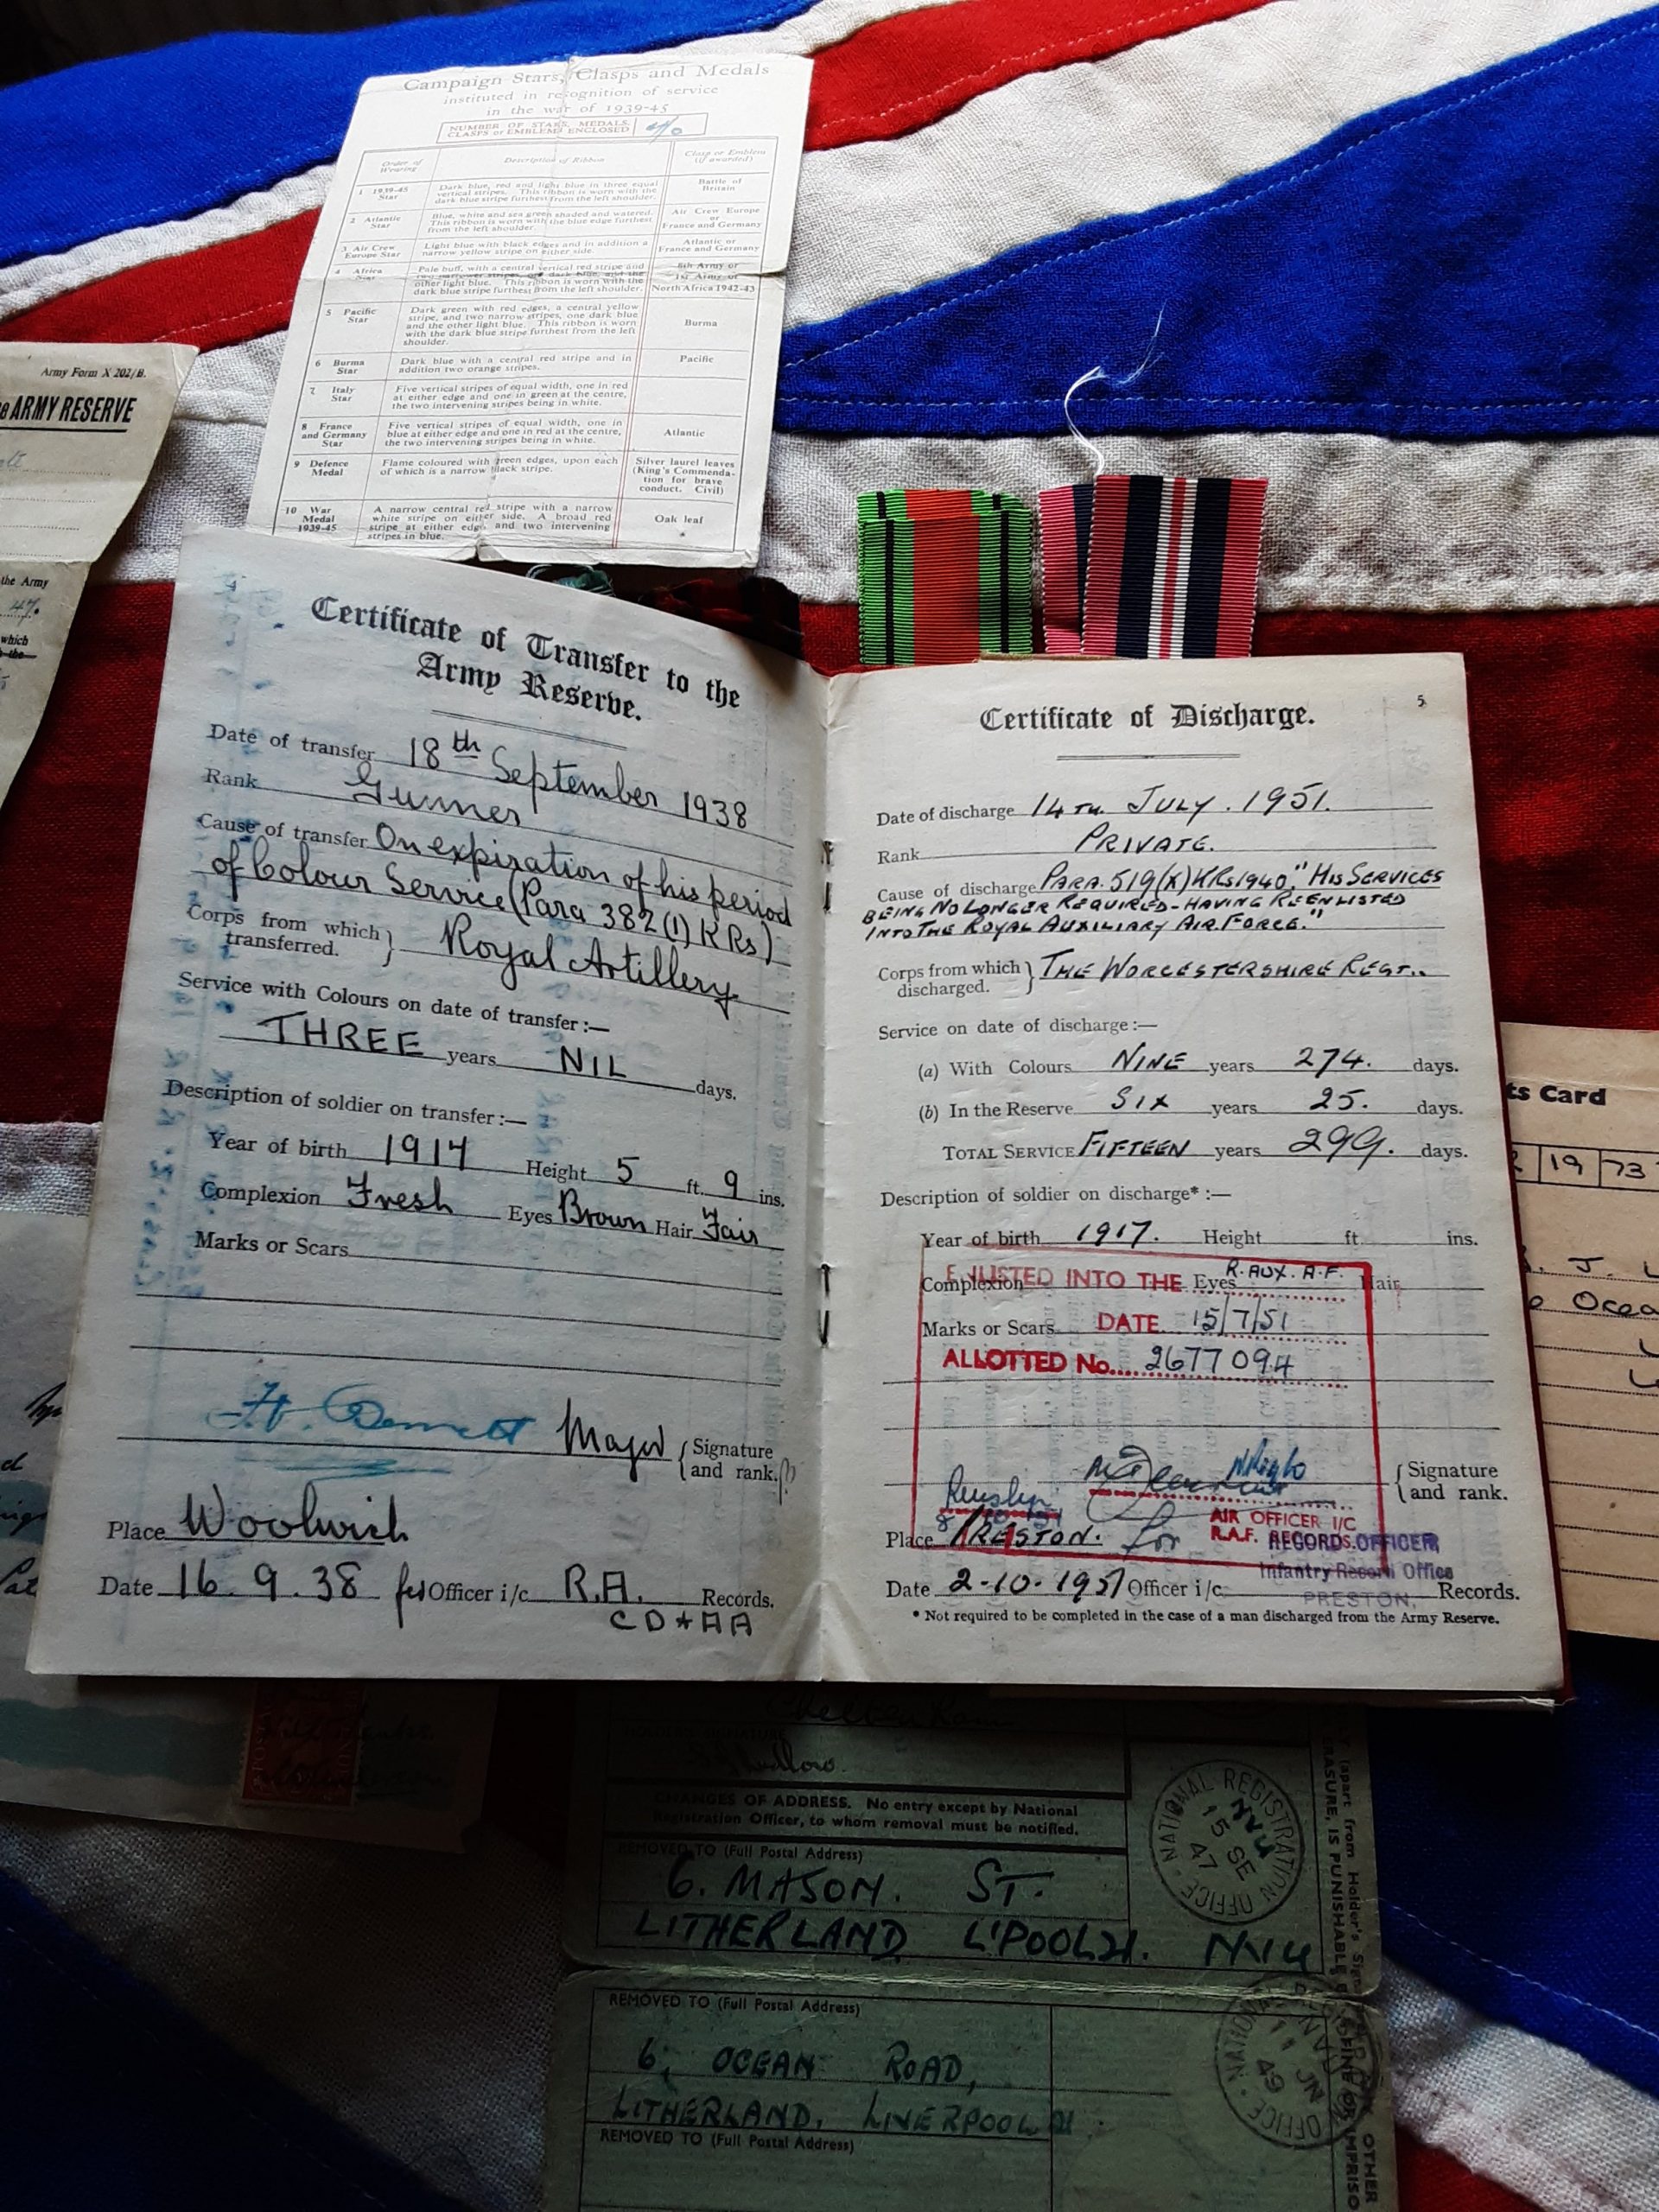 Campaign Stars, Clasps and Medals
instituted in recognition of service
in the war of 1939-45
NUMBER OF STARS, MEDALS,
CLASPS or EMBLEMS ENCLOSED
Order of Wearing Description of Ribbon Clasp or Emblem (if awarded)
1 1939-45 Star Dark blue, red and light blue in three equal vertical stripes. This ribbon is worn with the dark blue stripe furthest from the left shoulder. Battle of Britain
2 Atlantic Star Blue, white and sea green shaded and watered. This ribbon is worn with the blue edge furthest from the left shoulder. Air Crew Europe or France and Germany
3 Air Crew Europe Star Light blue with black edges and in addition a narrow yellow stripe on either side. Atlantic or France and Germany
4 Africa Star Pale buff, with a central vertical red stripe and two narrower stripes, one dark blue, and the other light blue. This ribbon is worn with the dark blue stripe furthest from the left shoulder. 8th Army or 1st Army or North Africa 1942-43
5 Pacific Star Dark green with red edges, a central yellow stripe, and two narrow stripes, one dark blue and the other light blue. This ribbon is worn with the dark blue stripe furthest from the left shoulder. Burma
6 Burma Star Dark blue with a central red stripe and in addition two orange stripes. Pacific
7 Italy Star Five vertical stripes of equal width, one in red at either edge and one in green at the centre, the two intervening stripes being in white.
8 France and Germany Star Five vertical stripes of equal width, one in blue at either edge and one in red at the centre, the two intervening stripes being in white. Atlantic
9 Defence Medal Flame coloured with green edges, upon each of which is a narrow black stripe. Silver laurel leaves (King's Commendation for brave conduct. Civil)
10 War Medal 1939-45 A narrow central red stripe with a narrow white stripe on either side. A broad red stripe at either edge, and two intervening stripes in blue. Oak leaf
Army Form X 202/B.
ARMY RESERVE
the Army
47.
which
the
4
Certificate of Transfer to the
Army Reserve.
Date of transfer 18th September 1938
Rank Gunner
Cause of transfer On expiration of his period
of Colour Service (Para 382 (1) KRs)
Corps from which transferred. } Royal Artillery
Service with Colours on date of transfer :—
THREE years NIL days.
Description of soldier on transfer :—
Year of birth 1914 Height 5 ft. 9 ins.
Complexion Fresh Eyes Brown Hair Fair
Marks or Scars
Major { Signature and rank.
Place Woolwich
Date 16.9.38 for Officer i/c R.A. Records.
CD * AA
5
Certificate of Discharge.
Date of discharge 14TH JULY. 1951.
Rank PRIVATE.
Cause of discharge PARA. 519(X) KRs1940. "HIS SERVICES
BEING NO LONGER REQUIRED - HAVING REENLISTED
INTO THE ROYAL AUXILIARY AIR FORCE."
Corps from which discharged. } THE WORCESTERSHIRE REGT..
Service on date of discharge :—
(a) With Colours NINE years 274. days.
(b) In the Reserve SIX years 25. days.
TOTAL SERVICE FIFTEEN years 299. days.
Description of soldier on discharge* :—
Year of birth 1917. Height ft. ins.
Complexion Eyes Hair
ENLISTED INTO THE R.AUX.A.F.
Marks or Scars
DATE 15/7/51
ALLOTTED No. 2677094
{ Signature and rank.
AIR OFFICER I/C
R.A.F. RECORDS
Place PRESTON. for
RECORDS OFFICER
Infantry Record Office
PRESTON.
Date 2-10-1951 Officer i/c Records.
* Not required to be completed in the case of a man discharged from the Army Reserve.
ts Card
19 73
J.
Ocea
CHANGES OF ADDRESS. No entry except by National
Registration Officer, to whom removal must be notified.
REMOVED TO (Full Postal Address)
6. MASON. ST.
LITHERLAND L'POOL 21. NVU
NATIONAL REGISTRATION OFFICE
NVU
15 SE
47
REMOVED TO (Full Postal Address)
6, OCEAN ROAD,
LITHERLAND. LIVERPOOL 21.
11 JN
49
REMOVED TO (Full Postal Address)